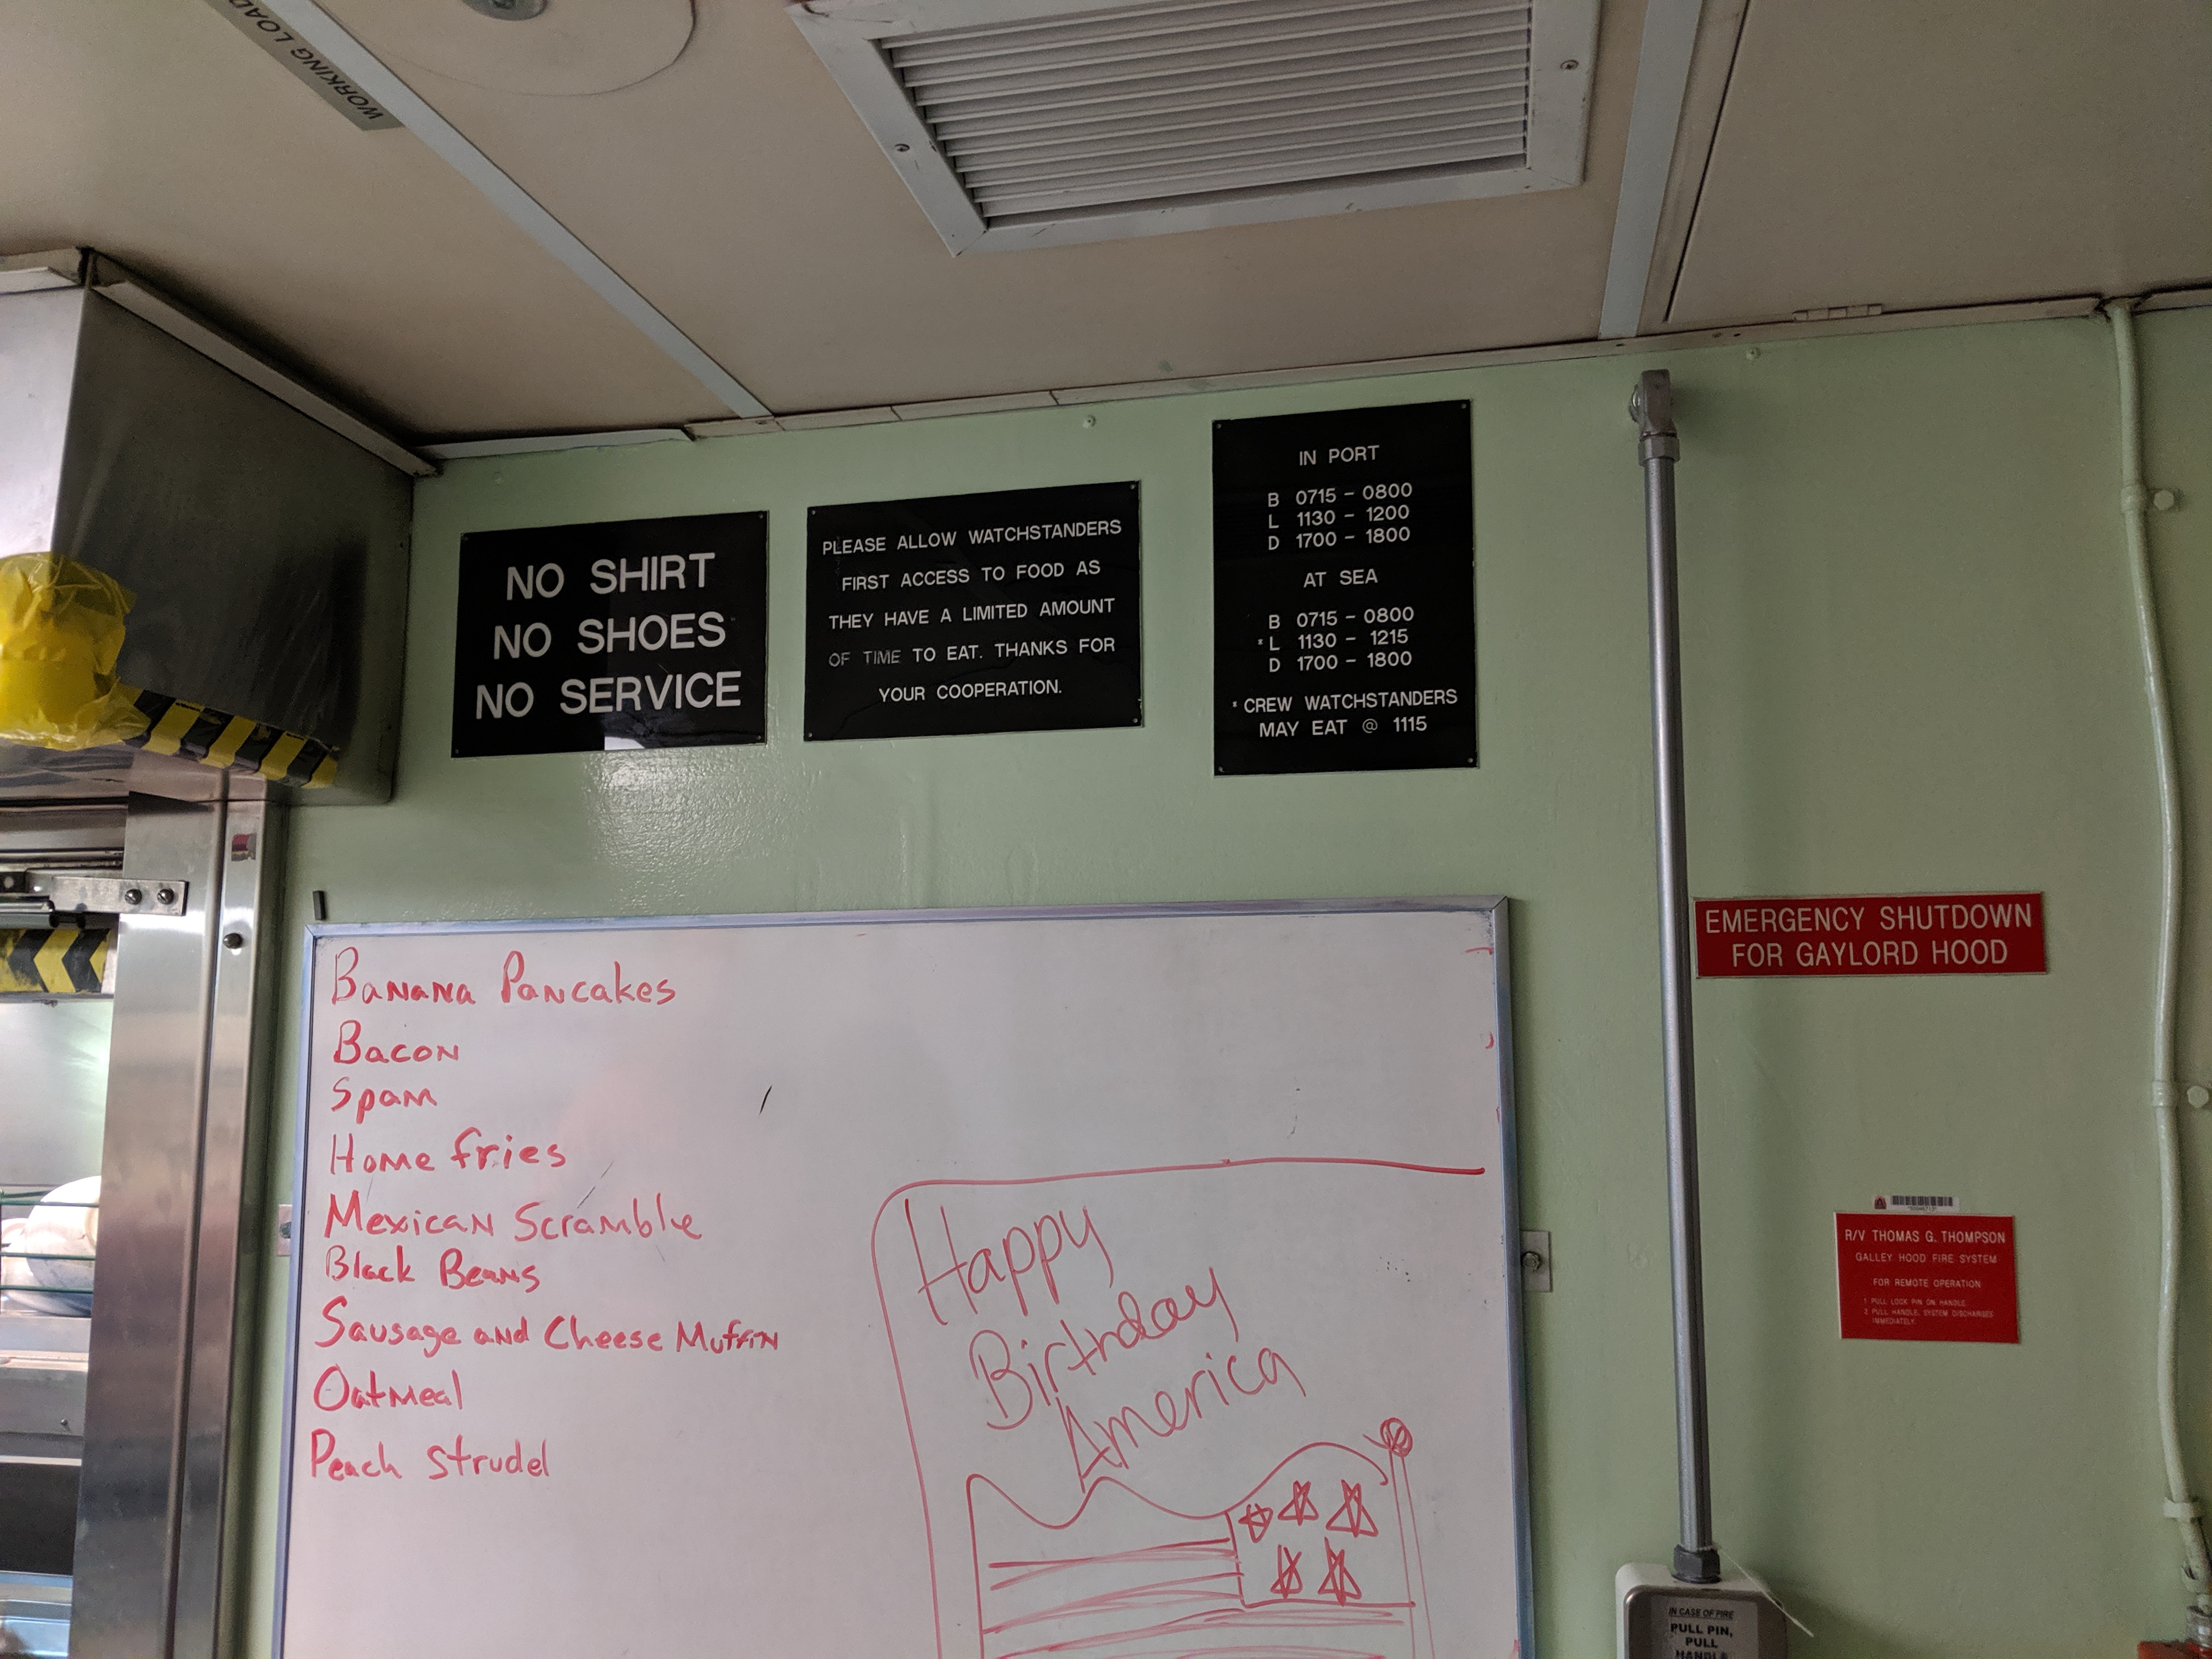 WORKING LOAD
NO SHIRT
NO SHOES
NO SERVICE
PLEASE ALLOW WATCHSTANDERS
FIRST ACCESS TO FOOD AS
THEY HAVE A LIMITED AMOUNT
OF TIME TO EAT. THANKS FOR
YOUR COOPERATION.
IN PORT
B 0715 - 0800
L 1130 - 1200
D 1700 - 1800
AT SEA
B 0715 - 0800
* L 1130 - 1215
D 1700 - 1800
* CREW WATCHSTANDERS
MAY EAT @ 1115
EMERGENCY SHUTDOWN
FOR GAYLORD HOOD
Banana Pancakes
Bacon
Spam
Home fries
Mexican Scramble
Black Beans
Sausage and Cheese Muffin
Oatmeal
Peach Strudel
Happy
Birthday
America
R/V THOMAS G. THOMPSON
GALLEY HOOD FIRE SYSTEM
FOR REMOTE OPERATION
1 PULL LOCK PIN ON HANDLE.
2 PULL HANDLE, SYSTEM DISCHARGES
IMMEDIATELY.
IN CASE OF FIRE
PULL PIN,
PULL
HANDLE